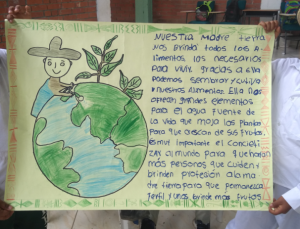 Nuestra Madre tierra
nos brinda todos los a
limentos los necesarios
para vivir. gracias a ella
podemos sembrar y cultivar
nuestros alimentos. Ella nos
grandes elementos
para el agua fuente de
la vida que moja las plantas
para que crescan de sus frutos.
es muy importante el concieli
zar al mundo para que haran
más personas que cuiden y
brinden protección a la ma
dre tierra para que permanesca
fertil y nos brinde más frutos.